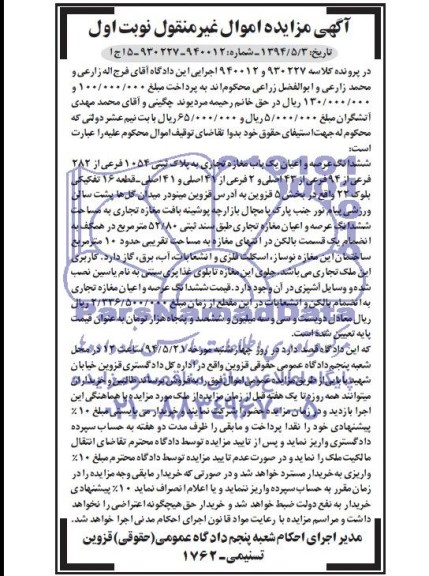 آگهی مزایده اموال غیرمنقول نوبت اول
تاریخ: ۱۳۹۴/۵/۳-شماره: ۹۴۰۰۱۲-۹۳۰۲۲۷-۵اج۱
در پرونده کلاسه ۹۳۰۲۲۷ و ۹۴۰۰۱۲ اجرایی این دادگاه آقای فرج اله زارعی و
محمد زارعی و ابوالفضل زراعی محکوم‌اند به پرداخت مبلغ ۱۰۰/۰۰۰/۰۰۰ و
۱۳۰/۰۰۰/۰۰۰ ریال در حق خانم رحیمه مردیوند چگینی و آقای محمد مهدی
آتشگران مبلغ ۵/۰۰۰/۰۰۰ ریال و ۶۵/۰۰۰/۰۰۰ ریال بابت نیم عشر دولتی که
محکوم له جهت استیفای حقوق خود بدوا تقاضای توقیف اموال محکوم علیه را عبارت
است:
ششدانگ عرصه و اعیان یک باب مغازه تجاری به پلاک ثبتی ۱۰۵۴ فرعی از ۲۸۲
فرعی از ۹۴ فرعی از ۴۳ اصلی و ۲ فرعی از ۴۱ اصلی و ۴۱ اصلی-قطعه ۱۶ تفکیکی
بلوک ۲۲ واقع در بخش ۵ قزوین به آدرس قزوین مینودر میدان گل‌ها پشت سالن
ورزشی پیام نور جنب پارک یامچال بازارچه پوشینه بافت مغازه تجاری به مساحت
ششدانگ عرصه و اعیان مغازه تجاری طبق سند ثبتی ۵۲/۸۰ مترمربع در همکف به
انضمام یک قسمت بالکن در انتهای مغازه به مساحت تقریبی حدود ۱۰ مترمربع
ساختمان این مغازه نوساز، اسکلت فلزی و انشعابات، آب، برق، گاز دارد. کاربری
این ملک تجاری می باشد. جلوی این مغازه تابلوی غذا پری بستنی به نام یاسین نصب
شده و وسایل آشپزی در آن وجود دارد. قیمت ششدانگ عرصه و اعیان مغازه تجاری
به انضمام بالکن و انشعابات در این مقطع از زمان مبلغ ۲/۳۳۶/۵۰۰/۰۰۰
ریال معادل دویست و سی و سه میلیون و ششصد و پنجاه هزار تومان به عنوان قیمت
پایه تعیین شده است.
که این دادگاه قصد دارد در روز چهارشنبه مورخه ۹۴/۵/۲۷ ساعت ۱۲ در محل
شعبه پنجم دادگاه عمومی حقوقی قزوین واقع در اداره کل دادگستری قزوین خیابان
شهید بابایی از طریق مزایده عمومی اموال فوق را به فروش برساند طالبین و خریداران
میتوانند همه روزه تا یک هفته قبل از زمان مزایده از ملک مورد مزایده با هماهنگی این
اجرا بازدید و در زمان مزایده حضور و شرکت نمایند و خریدار می بایستی مبلغ ۱۰٪
پیشنهادی خود را نقدا پرداخت و مابقی را ظرف مدت دو هفته به حساب سپرده
دادگستری واریز نماید و پس از تایید مزایده توسط دادگاه محترم تقاضای انتقال
مالکیت ملک را نماید و در صورت عدم تایید مزایده توسط دادگاه محترم مبلغ ۱۰٪
واریزی به خریدار مسترد خواهد شد و در صورتی که خریدار مابقی وجه مزایده را در
زمان مقرر به حساب سپرده واریز ننماید و یا اعلام انصراف نماید ۱۰٪ پیشنهادی
خریدار به نفع دولت ضبط خواهد شد و خریدار حق هیچگونه اعتراضی را نخواهد
داشت و مراسم مزایده با رعایت مواد قانون اجرای احکام مدنی اجرا خواهد شد.
مدیر اجرای احکام شعبه پنجم دادگاه عمومی(حقوقی) قزوین
تسنیمی-۱۷۶۲
ParsNamadData